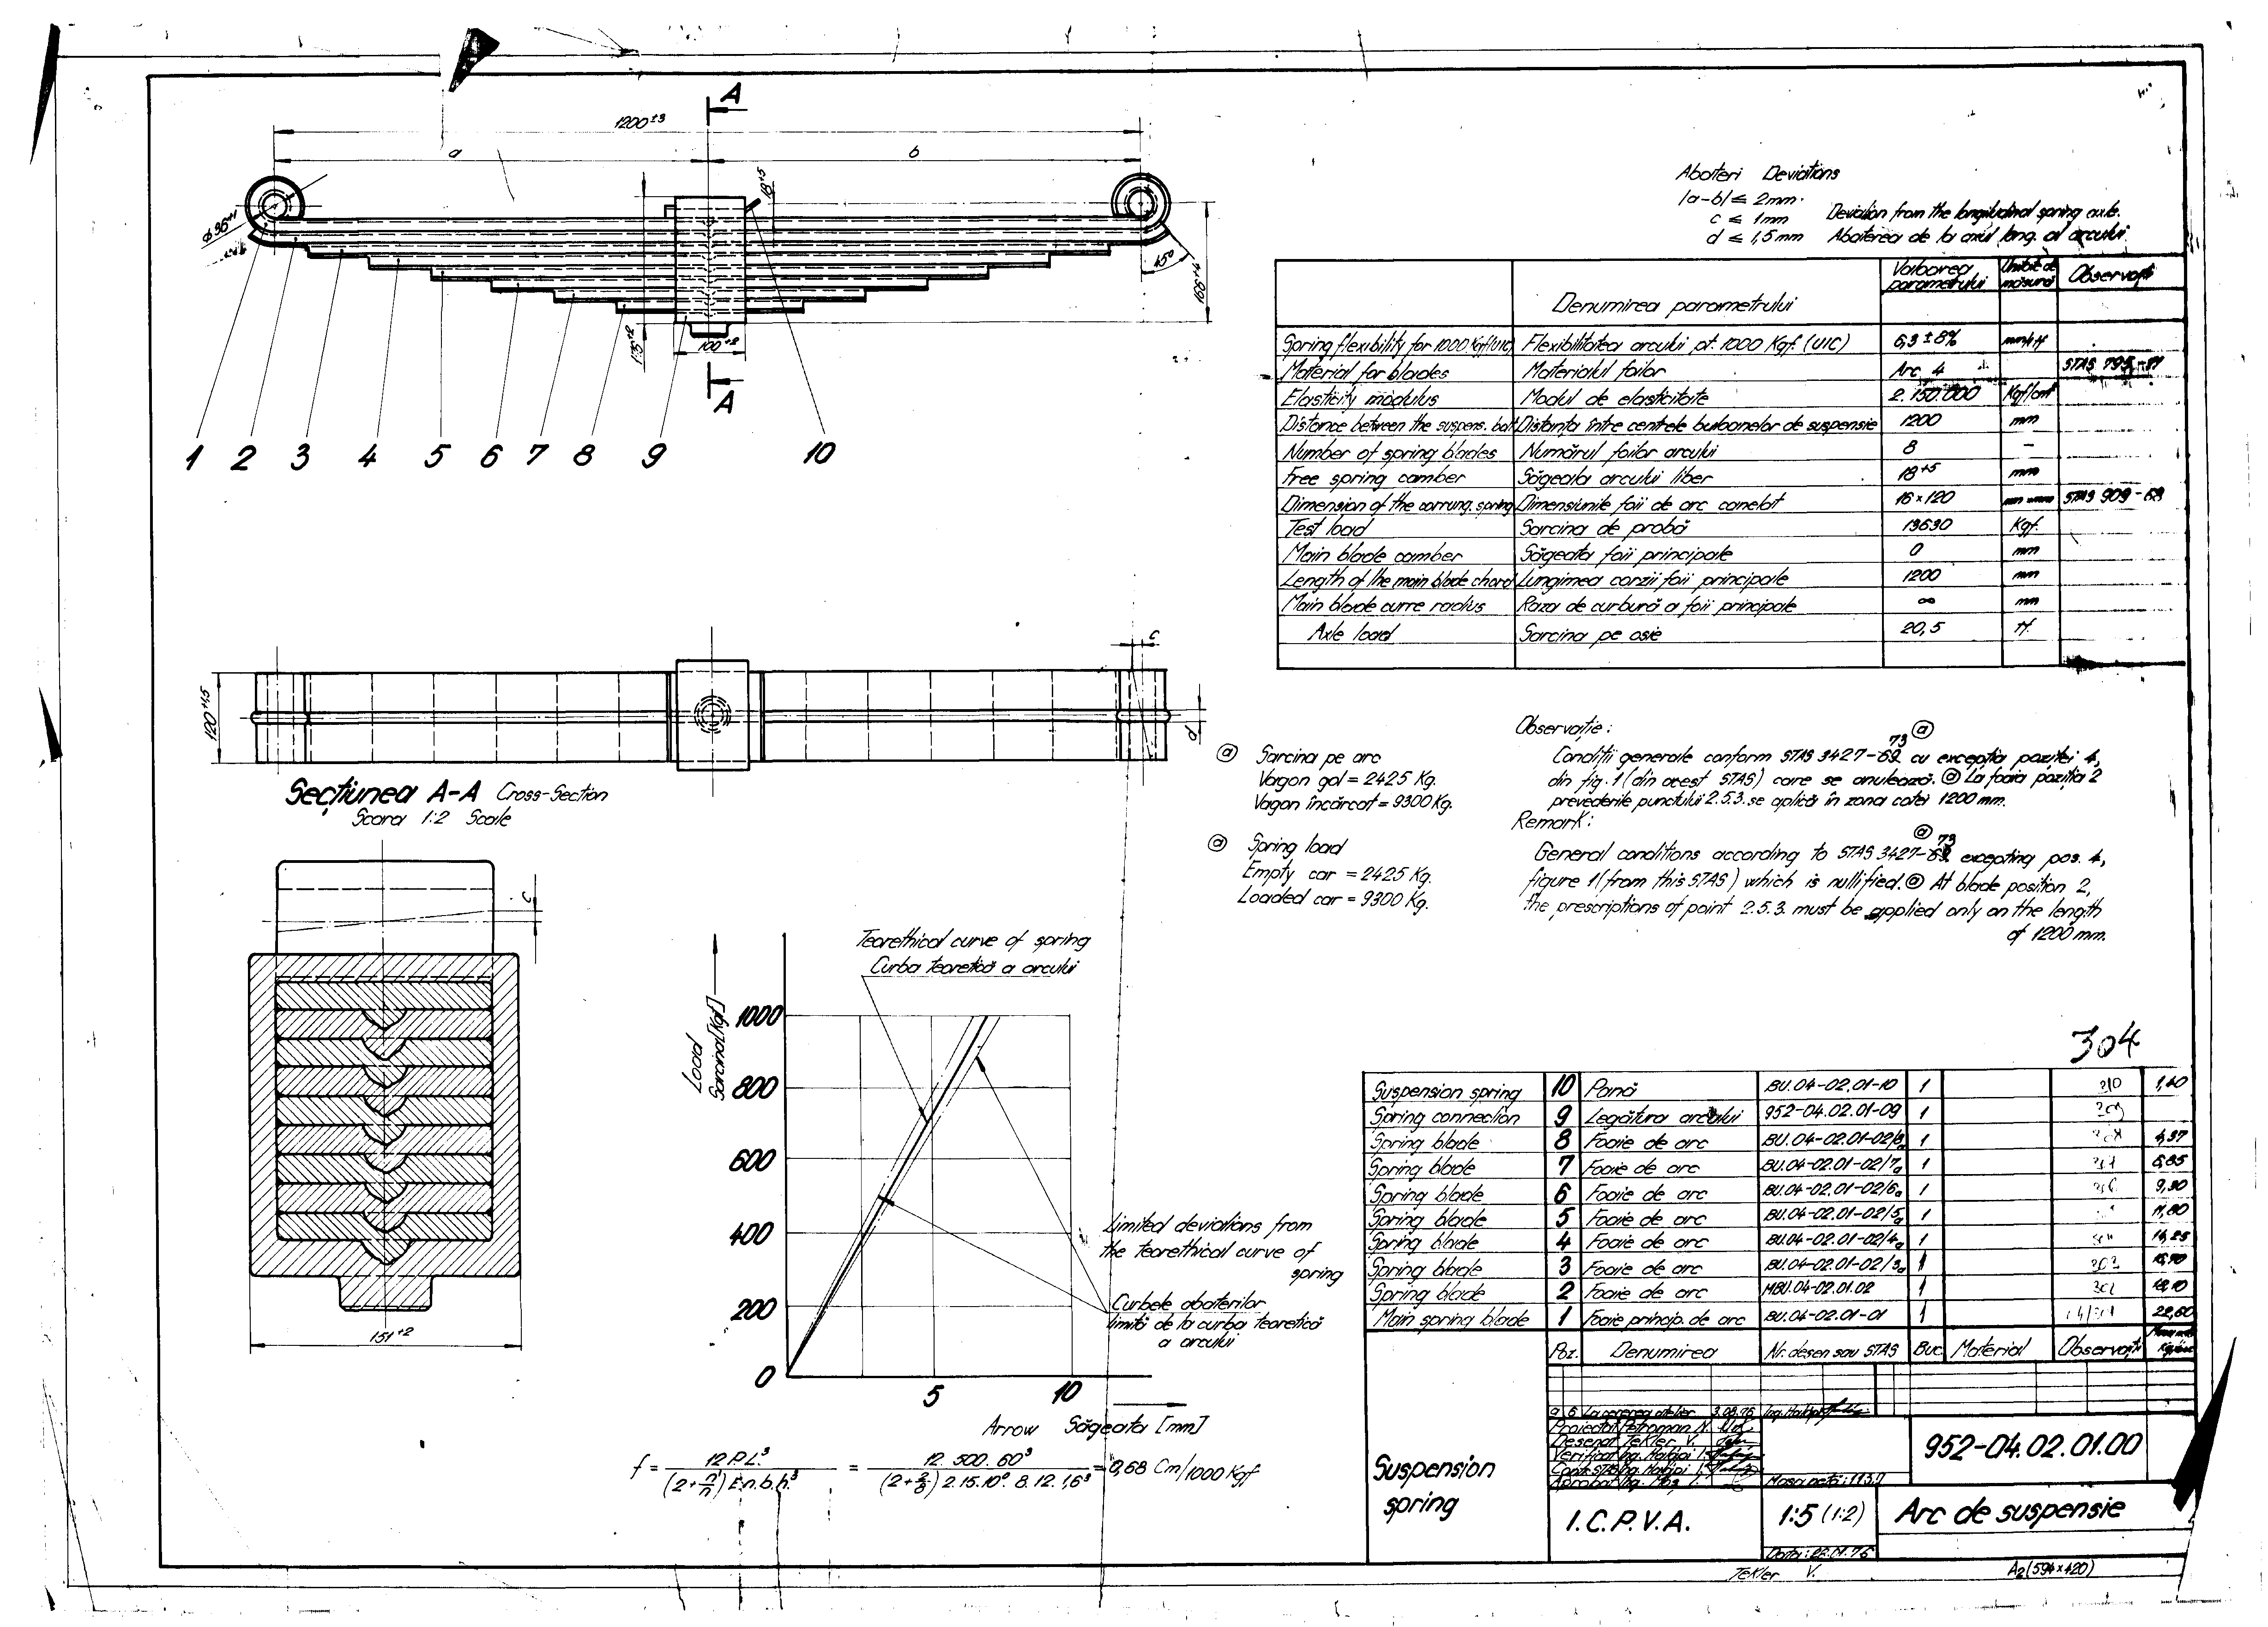 A
1200±3
a
b
18+5
ϕ36+1
45°
165+4
100+2
A
1 2 3 4 5 6 7 8 9 10
Abateri Deviations
|a-b| ≤ 2mm.
c ≤ 1mm Deviation from the longitudinal spring axle.
d ≤ 1,5mm Abaterea de la axul long. al arcului
Denumirea parametrului Valoarea parametrului Unitate de măsură Observații
Spring flexibility for 1000 Kgf(UIC) Flexibilitatea arcului pt. 1000 Kgf. (UIC) 6,3 ±8%
Material for blades Materialul foilor Arc 4 STAS 795-71
Elasticity modulus Modul de elasticitate 2.150.000 Kgf/cm²
Distance between the suspens. bolt Distanța între centrele buloanelor de suspensie 1200 mm
Number of spring blades Numărul foilor arcului 8 -
Free spring camber Săgeata arcului liber 18+5 mm
Dimension of the corrung. spring Dimensiunile foii de arc canelat 16×120 STAS 909-68
Test load Sarcina de probă 13630 Kgf.
Main blade camber Săgeata foii principale 0 mm
Length of the main blade chord Lungimea corzii foii principale 1200 mm
Main blade curre radius Raza de curbură a foii principale ∞ mm
Axle load Sarcina pe osie 20,5 tf.
c
120+1,5
d
Secțiunea A-A Cross-Section
Scara 1:2 Scale
c
151+2
ⓐ Sarcina pe arc
Vagon gol = 2425 Kg.
Vagon încărcat = 9300 Kg.
ⓐ Spring load
Empty car = 2425 Kg.
Loaded car = 9300 Kg.
Observație:
73 ⓐ
Condiții generale conform STAS 3427-69 cu excepția poziției 4,
din fig. 1 (din acest STAS) care se anulează. ⓐ La foaia poziția 2
prevederile punctului 2.5.3. se aplică în zona cotei 1200 mm.
Remark:
ⓐ 73
General conditions according to STAS 3427-69 excepting pos. 4,
figure 1 (from this STAS) which is nullified. ⓐ At blade position 2,
the prescriptions of point 2.5.3. must be applied only on the length
of 1200 mm.
Teorethical curve of spring
Curba teoretică a arcului
Load
Sarcina [Kgf]
1000
800
600
400
200
0
5 10
Arrow Săgeata [mm]
Limited deviations from
the teorethical curve of
spring
Curbele abaterilor
limită de la curba teoretică
a arcului
f = 12.P.L³ / (2+n'/n) E.n.b.h³ = 12. 500. 60³ / (2+2/8) 2.15.10⁶. 8. 12. 1,6³ = 0,68 Cm/1000 Kgf
304
Suspension spring 10 Pană BU.04-02.01-10 1 310 1,40
Spring connection 9 Legătura arcului 952-04.02.01-09 1 309
Spring blade 8 Foaie de arc BU.04-02.01-02/8a 1 4,37
Spring blade 7 Foaie de arc BU.04-02.01-02/7a 1 6,85
Spring blade 6 Foaie de arc BU.04-02.01-02/6a 1 9,30
Spring blade 5 Foaie de arc BU.04-02.01-02/5a 1 11,80
Spring blade 4 Foaie de arc BU.04-02.01-02/4a 1 14,25
Spring blade 3 Foaie de arc BU.04-02.01-02/3a 1 303
Spring blade 2 Foaie de arc MBU.04-02.01.02 1 302
Main spring blade 1 Foaie princip. de arc BU.04-02.01-01 1 22,60
Poz. Denumirea Nr. desen sau STAS Buc Material Observații
a 6 La cererea atelier 3.08.76
Proiectat Petroman N.
Desenat Tekler V.
Verificat Ing. Halapi I.
Contr.STAS Ing. Halapi I.
Aprobat Ing.
952-04.02.01.00
Suspension
spring
I.C.P.V.A.
1:5 (1:2)
Arc de suspensie
Tekler V.
A2(594×420)